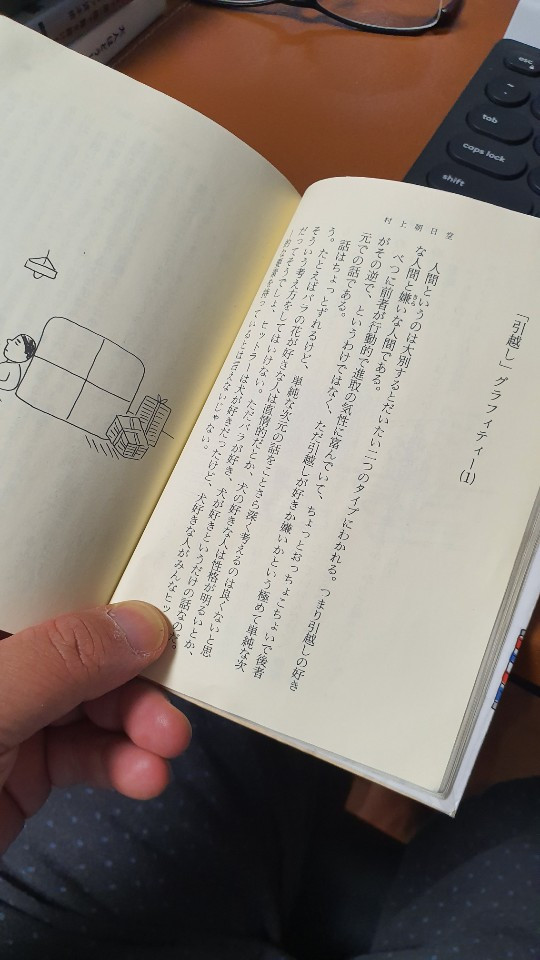 村上朝日堂
「引越し」グラフィティー(1)
人間というのは大別するとだいたい二つのタイプにわかれる。つまり引越しの好き
な人間と嫌いな人間である。
きら
べつに前者が行動的で進取の気性に富んでいて、ちょっとおっちょこちょいで後者
がその逆で、というわけではなく、ただ引越しが好きか嫌いかという極めて単純な次
元での話である。
話はちょっとずれるけど、単純な次元の話をことさら深く考えるのは良くないと思
う。たとえばバラの花が好きな人は直情的だとか、犬の好きな人は性格が明るいとか、
そういう考え方をしてはいけない。ただバラが好き、犬が好きというだけの話なのだ。
だってそうでしょ、ヒットラーは犬が好きだったけど、犬好きな人がみんなヒッ
esc
tab
caps lock
shift